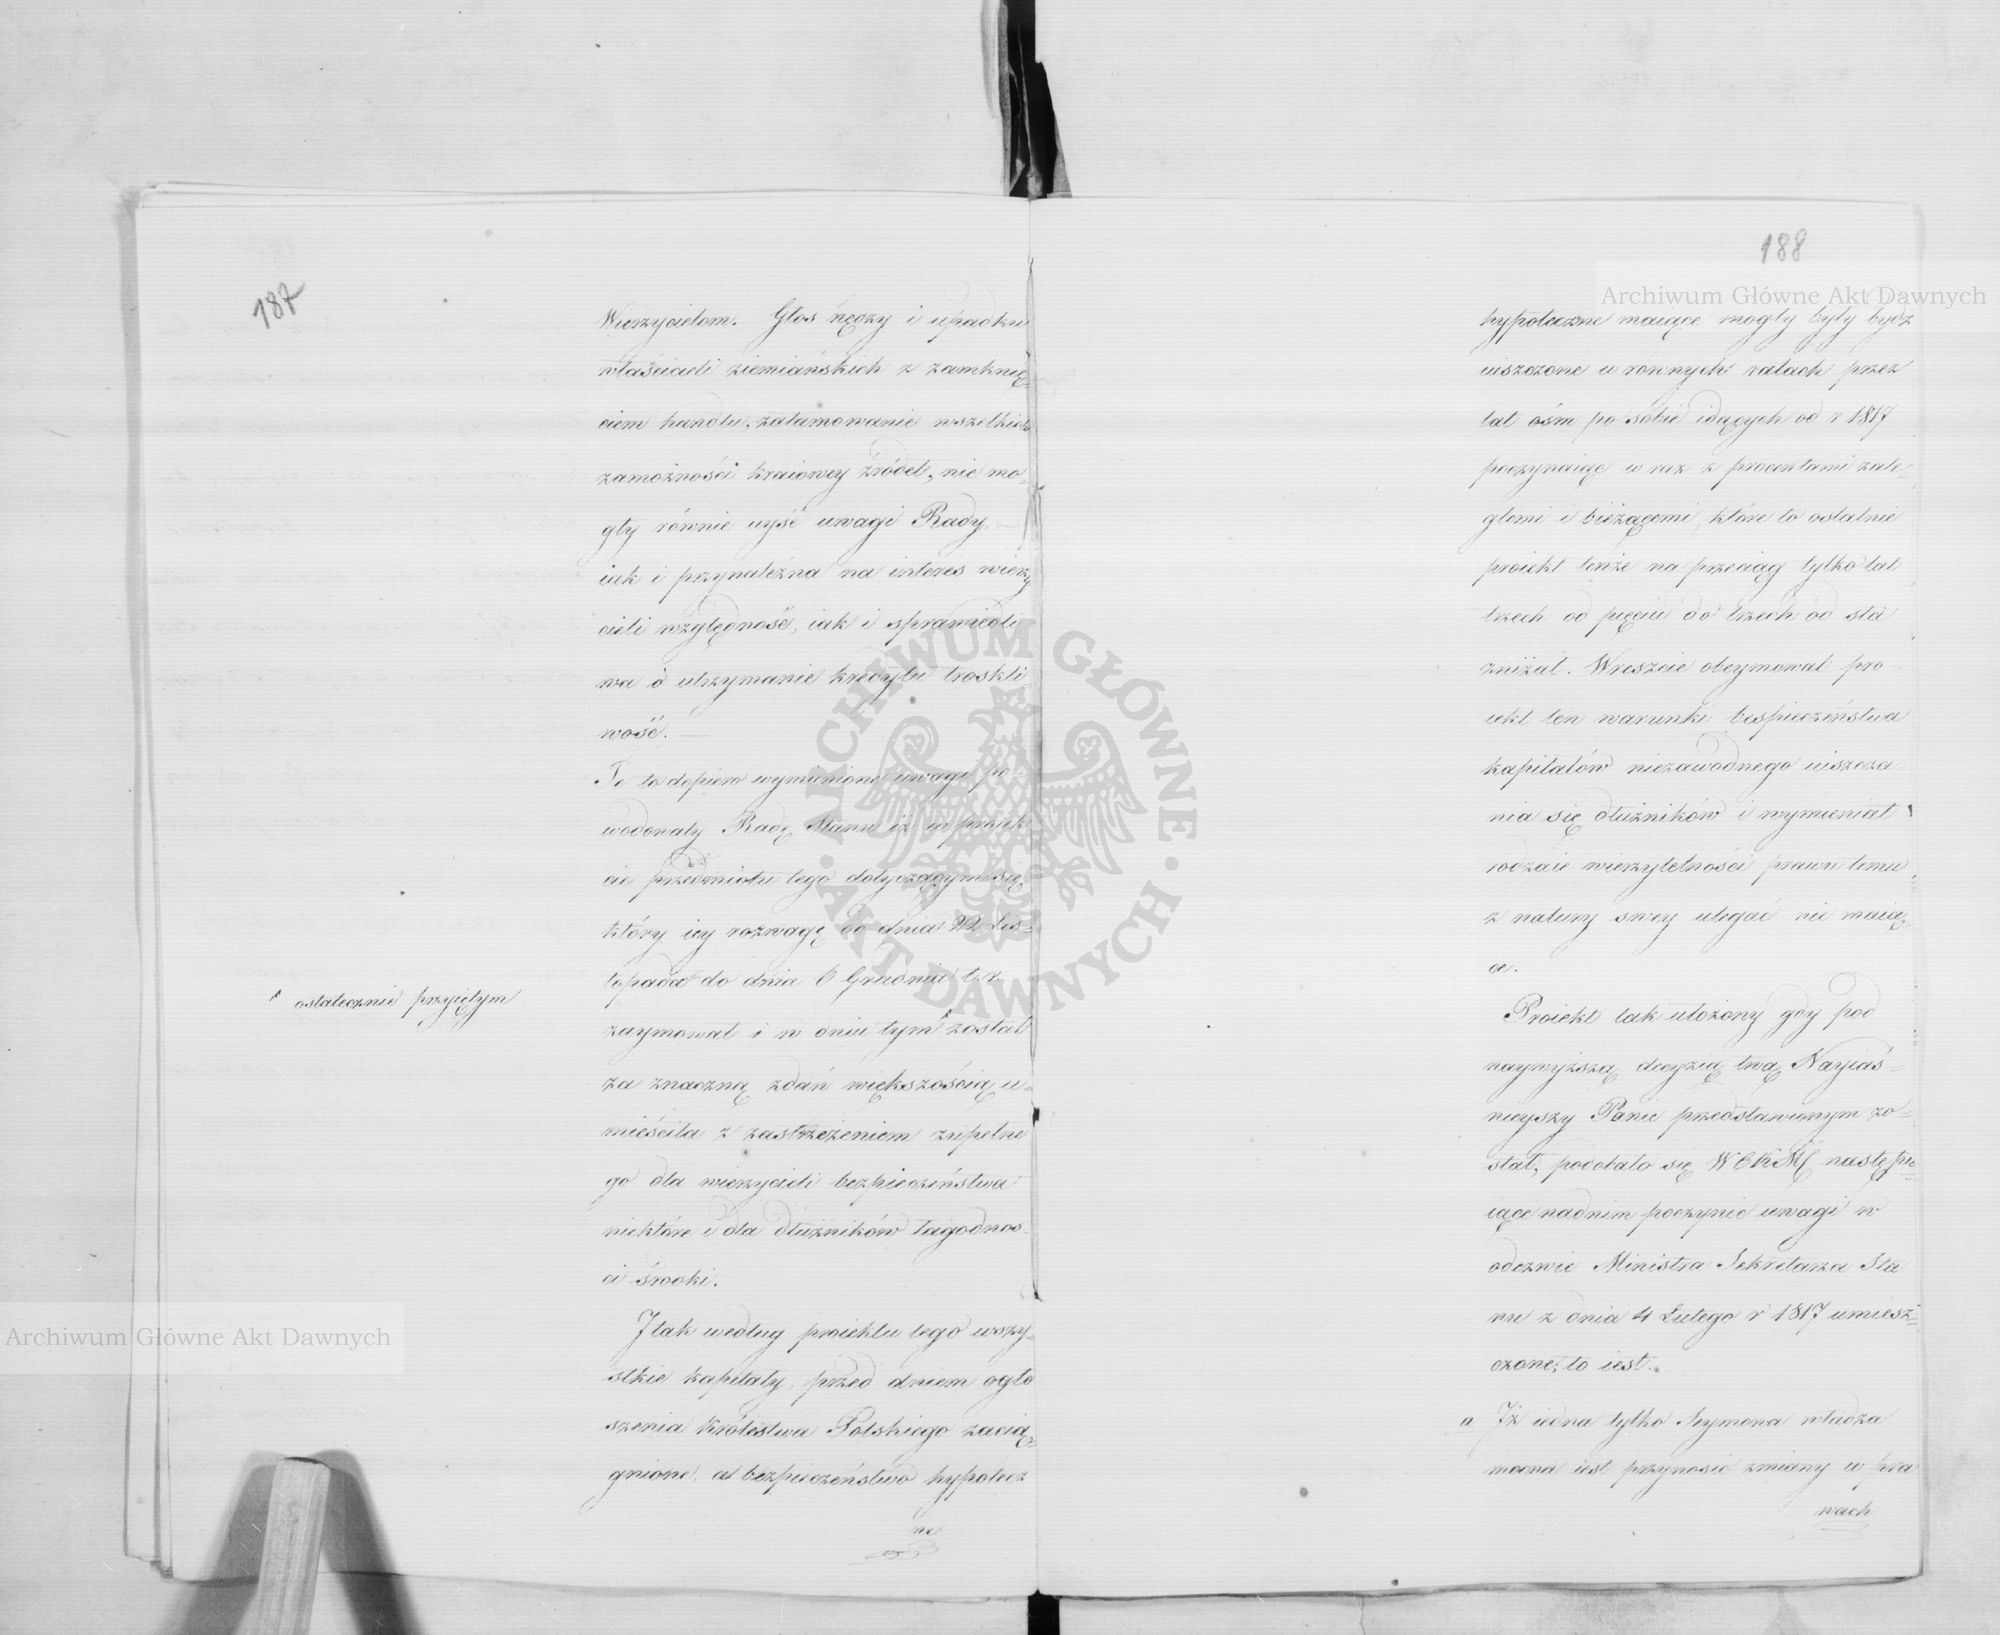 187
Wierzycielom. Głos nędzy i upadku
właścicieli ziemiańskich z zamknię-
ciem handlu, zatamowanie wszelkich
zamożności kraiowey źródeł, nie mo-
gły równie uyść uwagi Rady,
iak i przynależna na interes wierzy
cieli względność, iak i sprawiedli
wa o utrzymanie kredytu troskli
wość.
Te to dopiero wymienione uwagi po-
wodowały Radę Stanu iż w proiek
cie przedmiotu tego dotyczącym się,
który iey rozwagę od dnia Lis-
topada do dnia 6 Grudnia t. r.
zaymował i w dniu tym został
ostatecznie przyiętym
za znaczną zdań większością u-
mieściła z zastrzeżeniem zupełne
go dla wierzycieli bezpieczeństwa
niektóre i dla dłużników łagodnos-
ci środki.
I tak według proiektu tego wszy-
stkie kapitały, przed dniem ogło
szenia Królestwa Polskiego zacią-
gnione, a bezpieczeństwo hypotecz
ne
188
hypoteczne maiące mogły były bydź
uiszczone w równych ratach przez
lat ośm po sobie idących od r 1817
poczynaiąc w raz z procentami zale-
głemi i bieżącemi, które to ostatnie
proiekt tenże na przeciąg tylko lat
trzech od pięciu do trzech od sta
zniżał. Wreszcie obeymował pro-
iekt ten warunki bespieczeństwa
kapitałów niezawodnego uiszcza-
nia się dłużników i wymieniał
rodzaie wierzytelności prawu temu
z natury swey ulegać nie maią-
ce.
Proiekt tak ułożony gdy pod
naywyższą decyzią twą Nayiaś-
nieyszy Panie przedstawionym zo-
stał, podobało się WCKMci następu-
iące nad nim poczynić uwagi w
odezwie Ministra Sekretarza Sta
nu z dnia 4 Lutego r 1817 umiesz-
czone, to iest.
a Iż iedna tylko Seymowa władza
mocna iest przynosić zmiany w pra
wach
Archiwum Główne Akt Dawnych
Archiwum Główne Akt Dawnych
ARCHIWUM GŁÓWNE AKT DAWNYCH